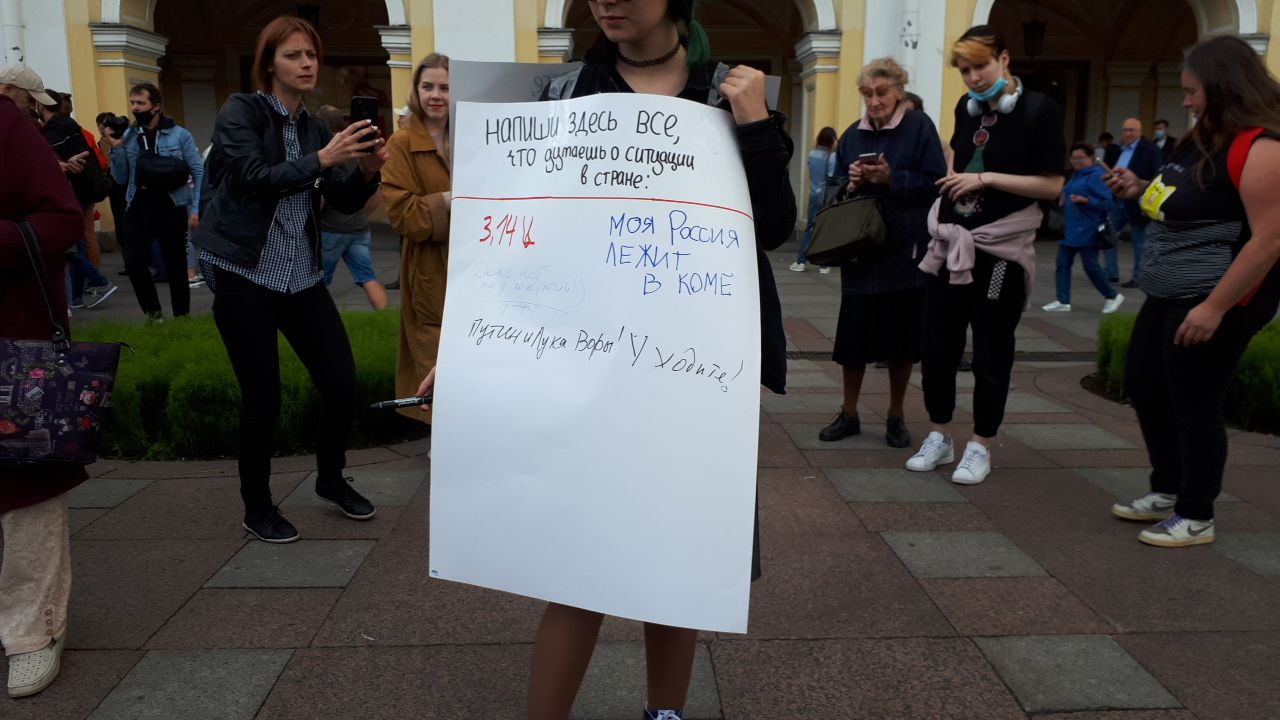 НАПИШИ ЗДЕСЬ ВСЕ,
ЧТО ДУМАЕШЬ О СИТУАЦИИ
В СТРАНЕ:
3,14Ц
МОЯ РОССИЯ
ЛЕЖИТ
В КОМЕ
Даже нет
Путин и Лука Воры! Уходите!